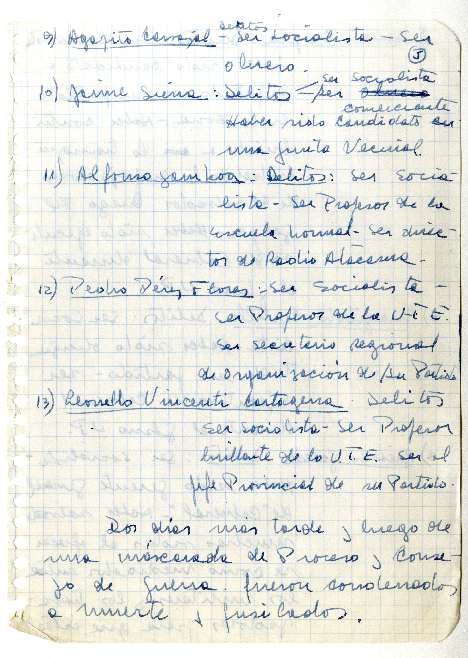 delitos
9) Agapito Carvajal - Ser Socialista - Ser
5
obrero.
ser socialista
10) Jaime Sierra : Delitos - ser obrero
comerciante
Haber sido candidato en
una junta Vecinal.
11) Alfonso Gamboa : Delitos : ser socia-
lista - Ser Profesor de la
escuela normal - Ser direc-
tor de Radio Atacama -
12) Pedro Pérez Flores : Ser Socialista -
ser Profesor de la U.T.E.
ser secretario regional
de organización de su Partido
13) Leonello Vincenti Cartagena . Delitos
ser socialista - Ser Profesor
brillante de la U.T.E. Ser el
jefe Provincial de su Partido.
Dos días más tarde y luego de
una máscarada de Proceso y Conse-
jo de guerra fueron condenados
a muerte y fusilados.